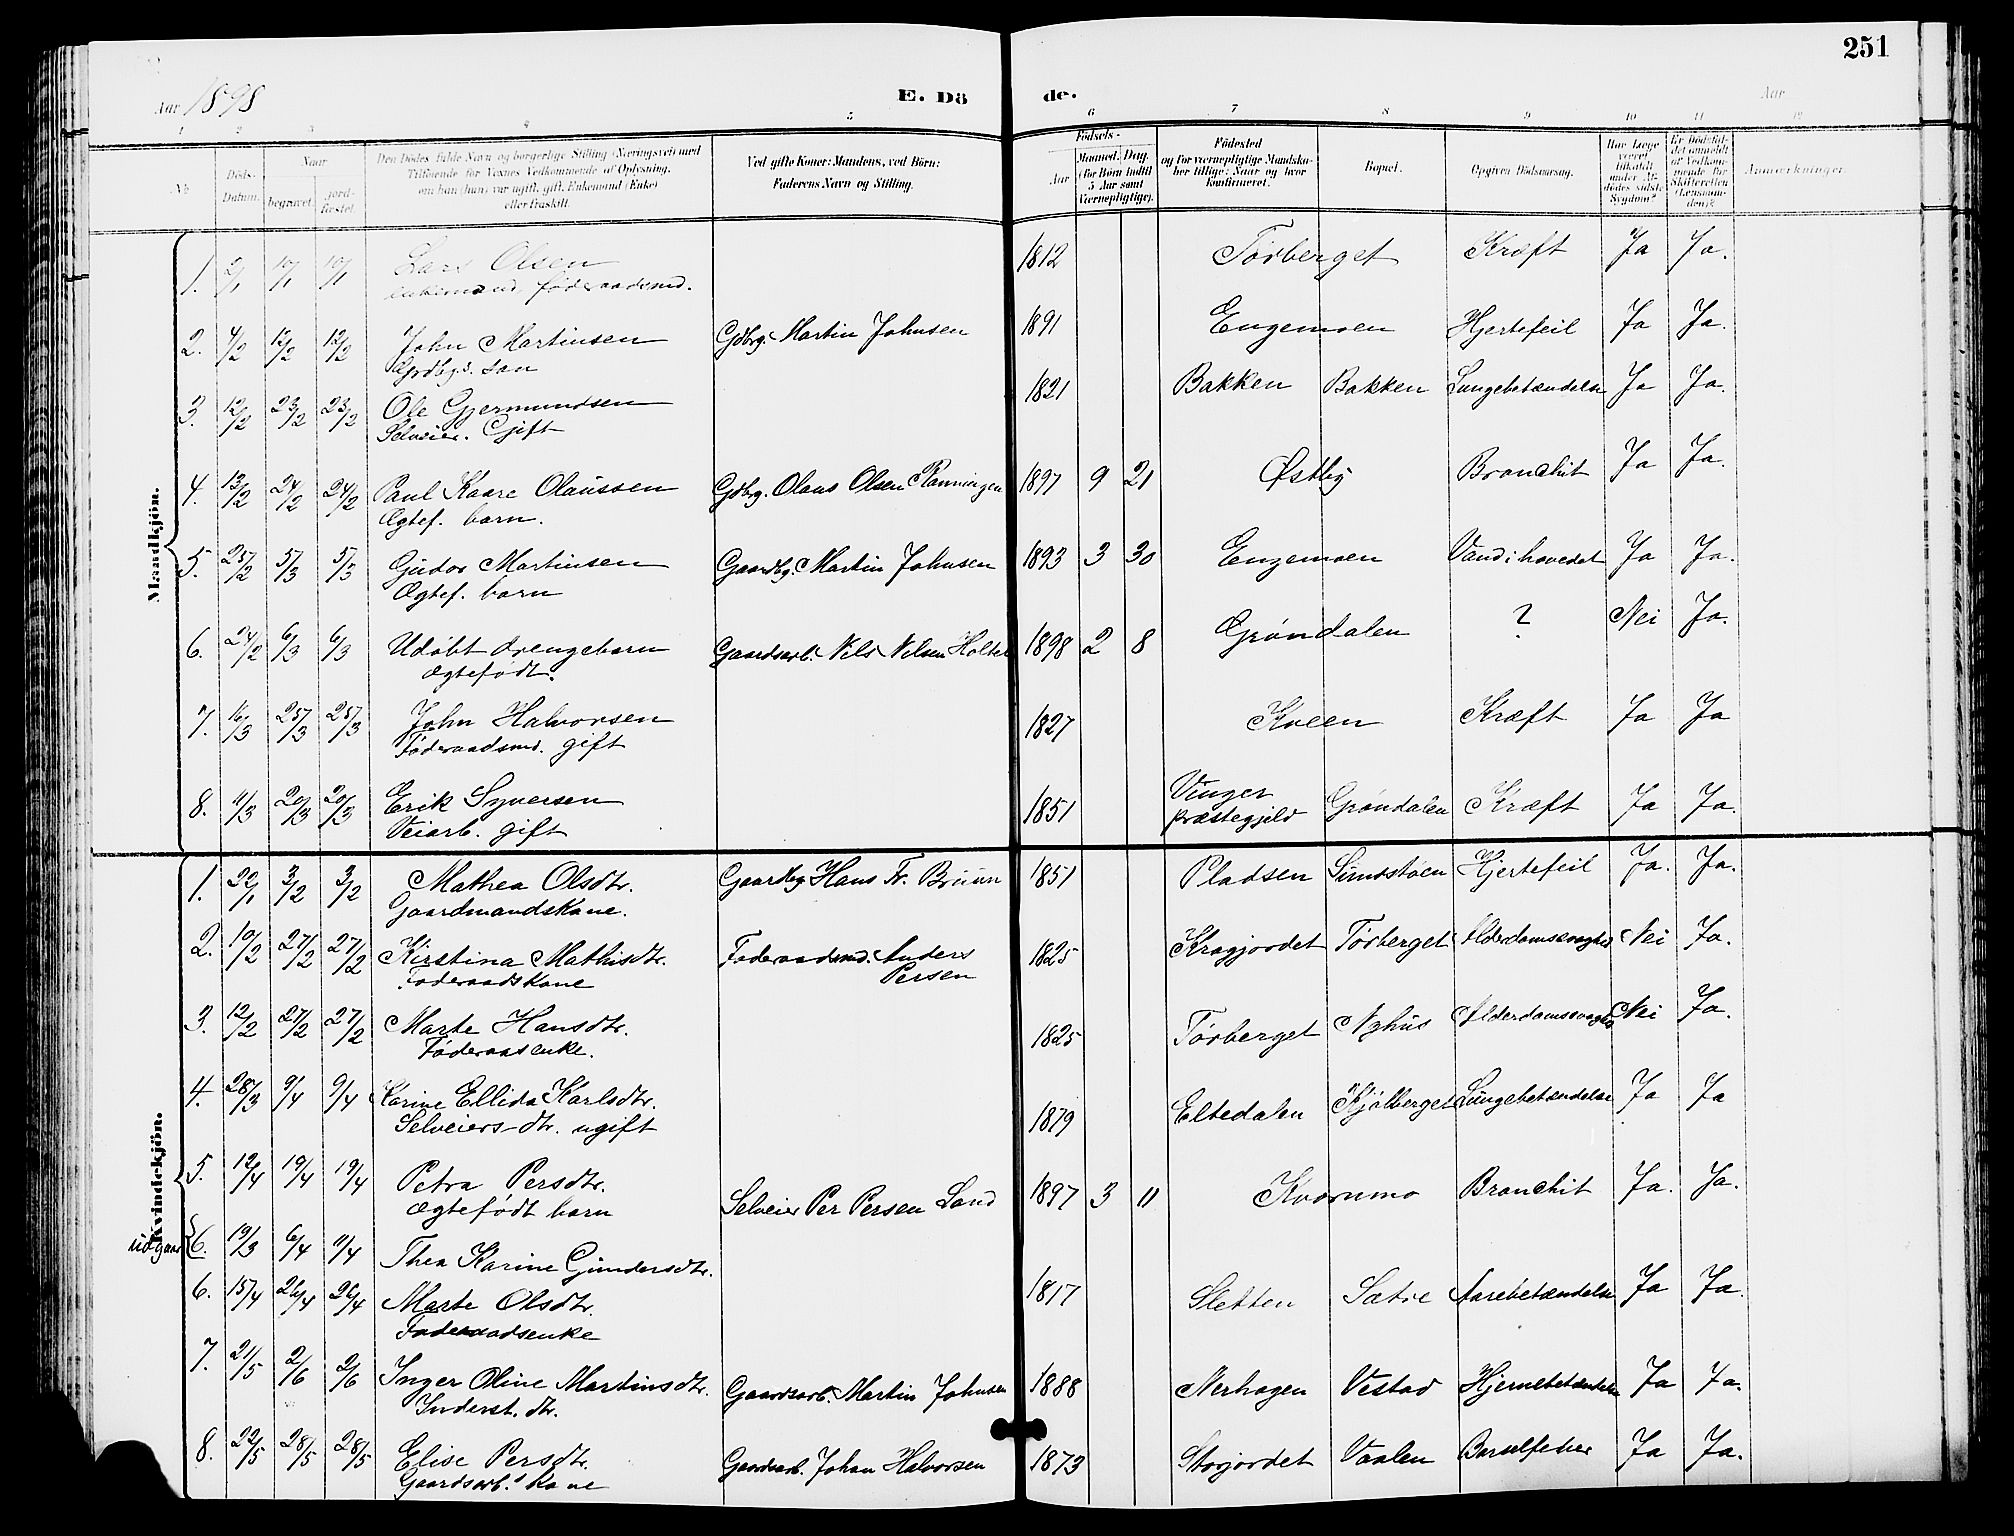 251
Aar 1898
E. Dö de.
Aar
1 2 3 4 5 6 7 8 9 10 11 12
No
Döds-Datum.
Naar
begravet.
jord-fæstet.
Den Dödes fulde Navn og borgerlige Stilling (Næringsvei) med
Tilföiende for Voxnes Vedkommende af Oplysning,
om han (hun) var ugift, gift, Enkemand (Enke)
eller fraskilt.
Ved gifte Koner: Mandens, ved Börn:
Faderens Navn og Stilling.
Födsels-
Aar
Maaned. Dag.
(for Börn indtil
5 Aar samt
Værnepligtige).
Födested
og for værnepligtige Mandskaber tillige: Naar og hvor konfirmeret.
Bopæl.
Opgiven Dödsaarsag.
Har Læge været tilkaldt under Afdödes sidste Sygdom?
Er Dödsfaldet anmeldt af Vedkommende for Skifteretten (Lensmanden)?
Anmærkninger.
Mandkjön.
1. 2/1 10/1 10/1 Lars Olsen 1812 Törberget Kræft Ja Ja.
enkemand, föderaadsmd.
2. 4/2 12/2 12/2 John Martinsen Gdbrg. Martin Johnsen 1891 Engemoen Hjertefeil Ja Ja.
Grdbgs. søn
3. 12/2 23/2 23/2 Ole Gjermundsen 1821 Bakken Bakken Lungebetændelse Ja Ja.
Selveier. Gift
4. 13/2 24/2 24/2 Paul Kaare Olaussen Gdbrg. Olaus Olsen Rønningen 1897 9 21 Østby Bronchit Ja Ja.
Ægtef. barn.
5. 25/2 5/3 5/3 Gudor Martinsen Gaardbg. Martin Johnsen 1893 3 30 Engemoen Vand i hovedet Ja Ja.
Ægtef. barn
6. 24/2 6/3 6/3 Udøbt drengebarn Gaardsarb. Nils Nilsen Holte 1898 2 8 Grøndalen ? Nei Ja.
ægtefødt.
7. 16/3 25/3 25/3 John Halvorsen 1827 Kveen Kræft Ja Ja
Föderaadsmd. gift
8. 11/3 20/3 20/3 Erik Syversen 1851 Vinger præstegjeld Grøndalen Kræft Ja Ja.
Veiarb. gift
Kvindekjön.
1. 22/1 3/2 3/2 Mathea Olsdtr. Gaardbg Hans Fr. Bruun 1851 Pladsen Sundstøen Hjertefeil Ja. Ja.
Gaardmandskone.
2. 10/2 27/2 27/2 Kirstina Mathisdtr. Føderaadsmd. Anders Persen 1825 Kragjordet Törberget Alderdomssvaghed Nei Ja.
Føderaadskone
3. 12/2 27/2 27/2 Marte Hansdtr. 1825 Törberget Nyhus Alderdomssvaghed Nei Ja.
Føderaasenke.
4. 28/3 9/4 9/4 Karine Ellida Karlsdtr. 1879 Eltedalen Kjølberget Lungebetændelse Ja Ja
Selveiers-dtr. ugift
5. 12/4 19/4 19/4 Petra Persdtr. Selveier Per Persen Lund 1897 3 11 Kvornmo Bronchit Ja. Ja.
ægtefødt barn
udgaar 6. 19/3 6/4 11/4 Thea Karine Gundersdtr.
6. 15/4 26/4 26/4 Marte Olsdtr. 1817 Sletten Sætre Aarebetændelse Ja Ja.
Føderaadsenke
7. 21/5 2/6 2/6 Inger Oline Martinsdtr. Gaardsarb. Martin Johnsen 1888 Nerhagen Vestad Hjernebetændelse Ja Ja.
Inderst. dtr.
8. 22/5 28/5 28/5 Elise Persdtr. Gaardsarb. Johan Halvorsen 1873 Storjordet Vaalen Barselfeber Ja Ja.
Gaardsarb.s kone